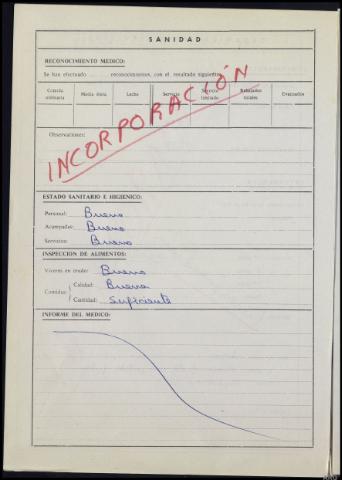 SANIDAD
RECONOCIMIENTO MEDICO:
Se han efectuado ........ reconocimientos, con el resultado siguiente:
Comida ordinaria Media dieta Leche Servicio Servicio limitado Rebajados totales Evacuados
INCORPORACIÓN
Observaciones:
ESTADO SANITARIO E HIGIENICO:
Personal: Bueno
Acampadas: Bueno
Servicios: Bueno
INSPECCION DE ALIMENTOS:
Víveres en crudo: Bueno
Comidas: Calidad: Buena
Cantidad: Suficiente
INFORME DEL MEDICO: